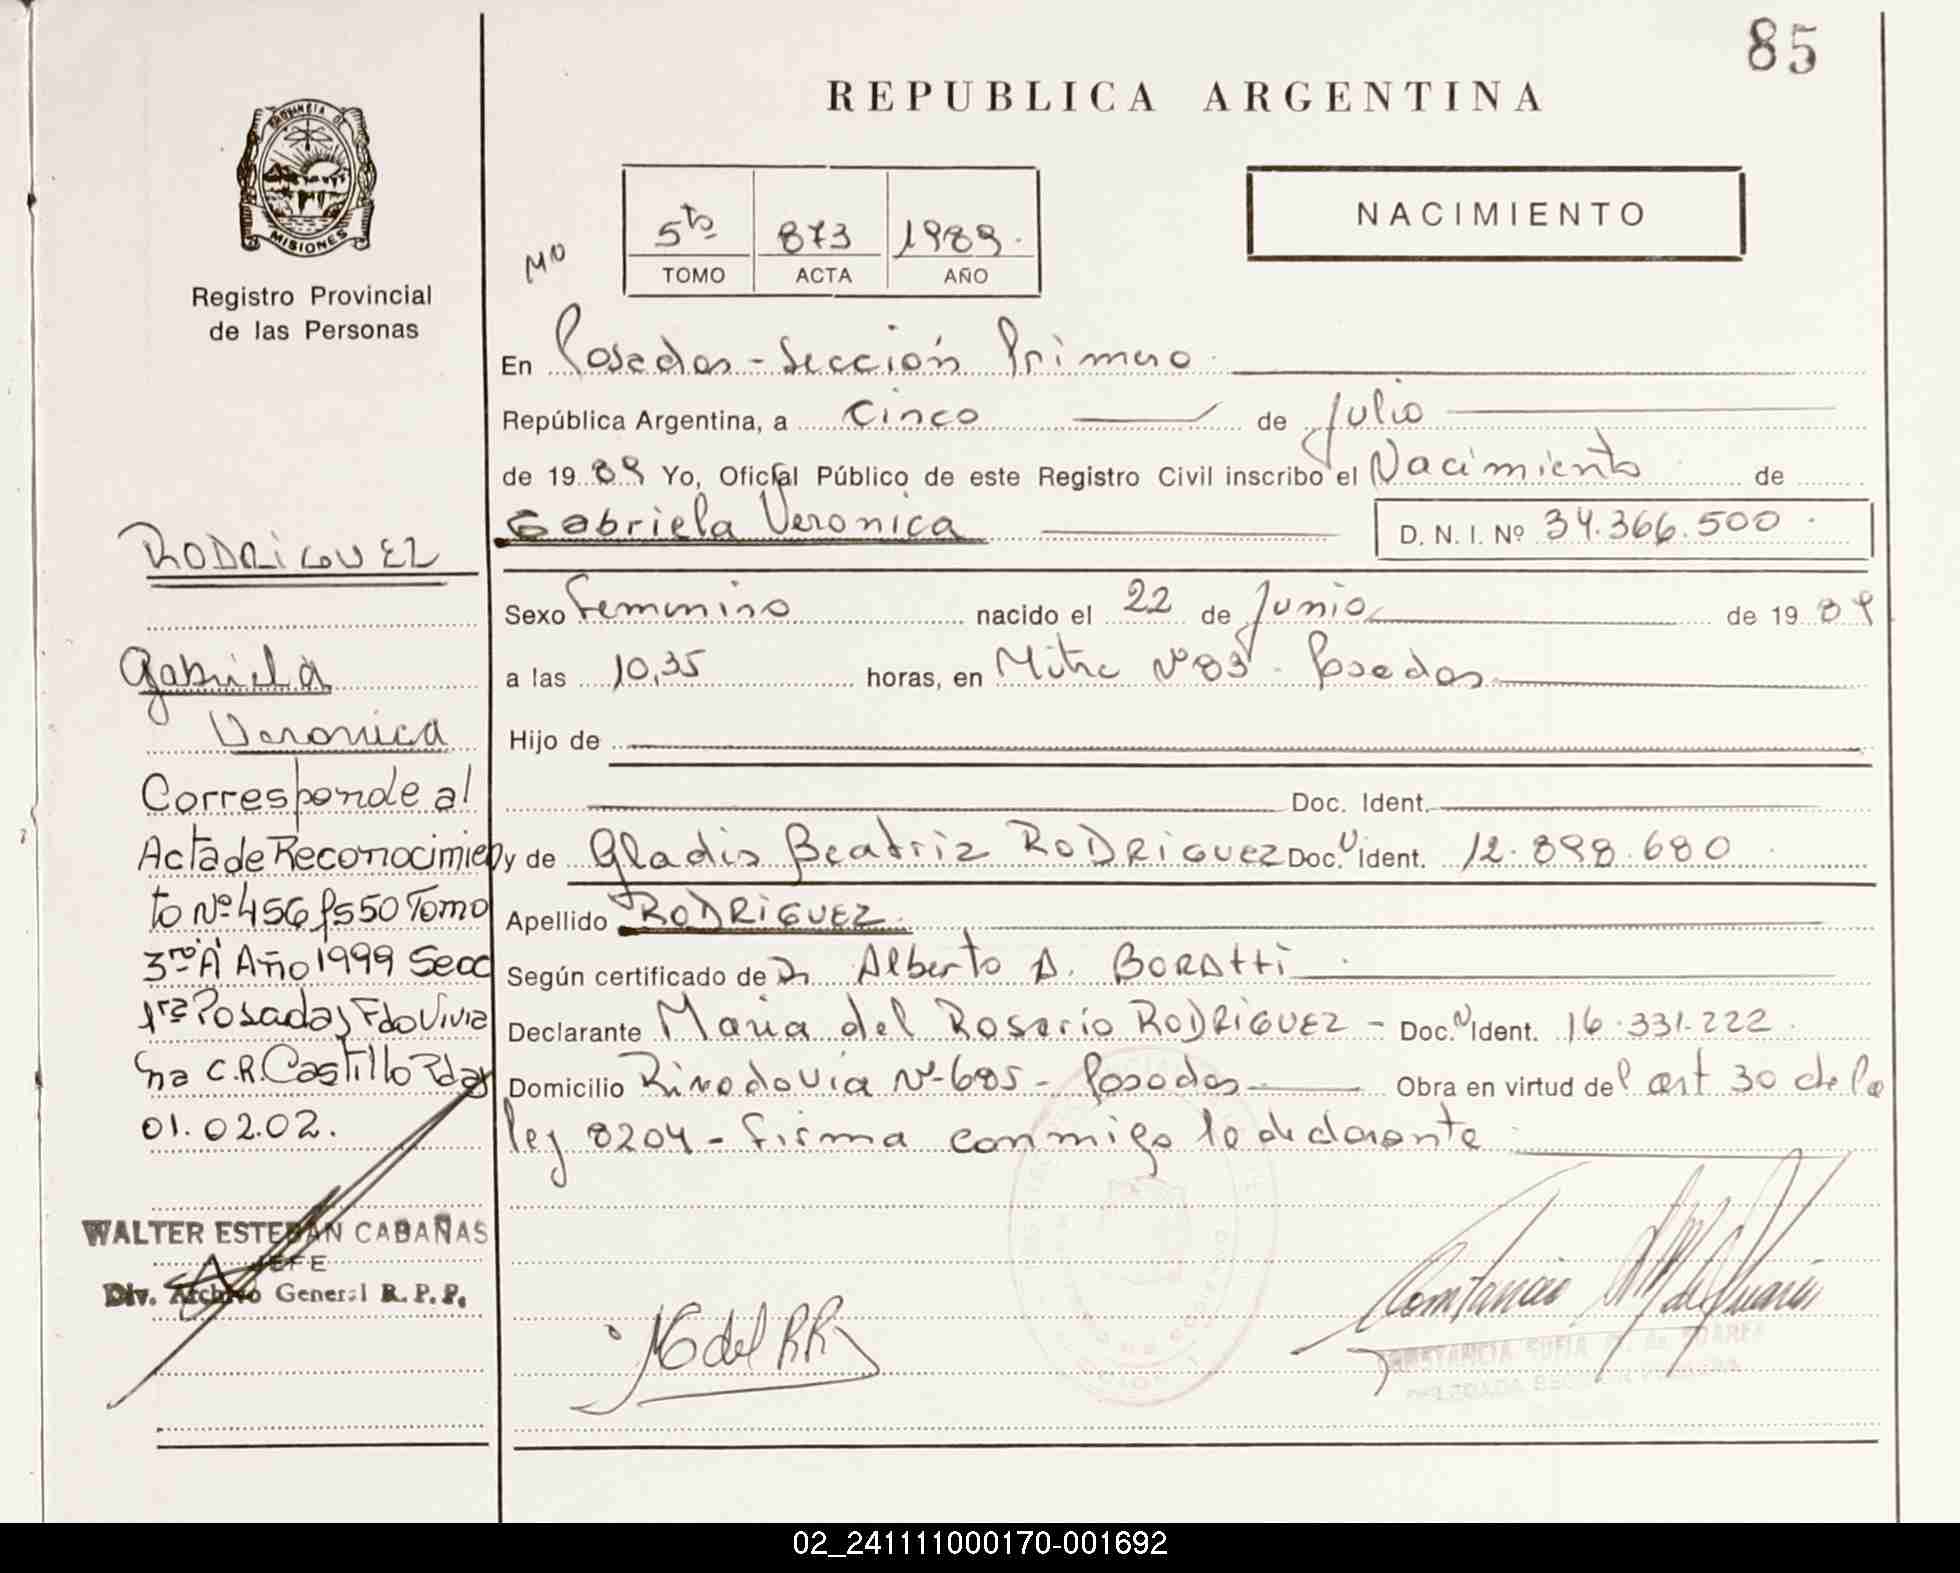 85
REPUBLICA ARGENTINA
PROVINCIA DE
MISIONES
Registro Provincial
de las Personas
5to 873 1989.
TOMO ACTA AÑO
NACIMIENTO
En Posadas - Sección Primera
República Argentina, a cinco de Julio
de 1989 Yo, Oficial Público de este Registro Civil inscribo el Nacimiento de
Gabriela Veronica D. N. I. Nº 34.366.500
Sexo Femenino nacido el 22 de Junio de 1989
a las 10,35 horas, en Mitre Nº 83 - Posadas
Hijo de
Doc. Ident.
y de Gladis Beatriz RODRIGUEZ Doc. Ident. 12.898.680
Apellido RODRIGUEZ
Según certificado de Dr. Alberto A. BORATTI
Declarante Maria del Rosario RODRIGUEZ - Doc. Ident. 16.331.222
Domicilio Rivadavia Nº 685 - Posadas Obra en virtud del art 30 de la
ley 8204 - Firma conmigo la declarante
RODRIGUEZ
Gabriela
Veronica
Corresponde al
Acta de Reconocimien
to Nº 456 fs 550 Tomo
3ro "A" Año 1999 Secc
1ra Posadas Fdo Vivia
na C.R. Castillo Pdas
01.02.02.
WALTER ESTEBAN CABAÑAS
JEFE
Div. Archivo General R. P. P.
02_241111000170-001692